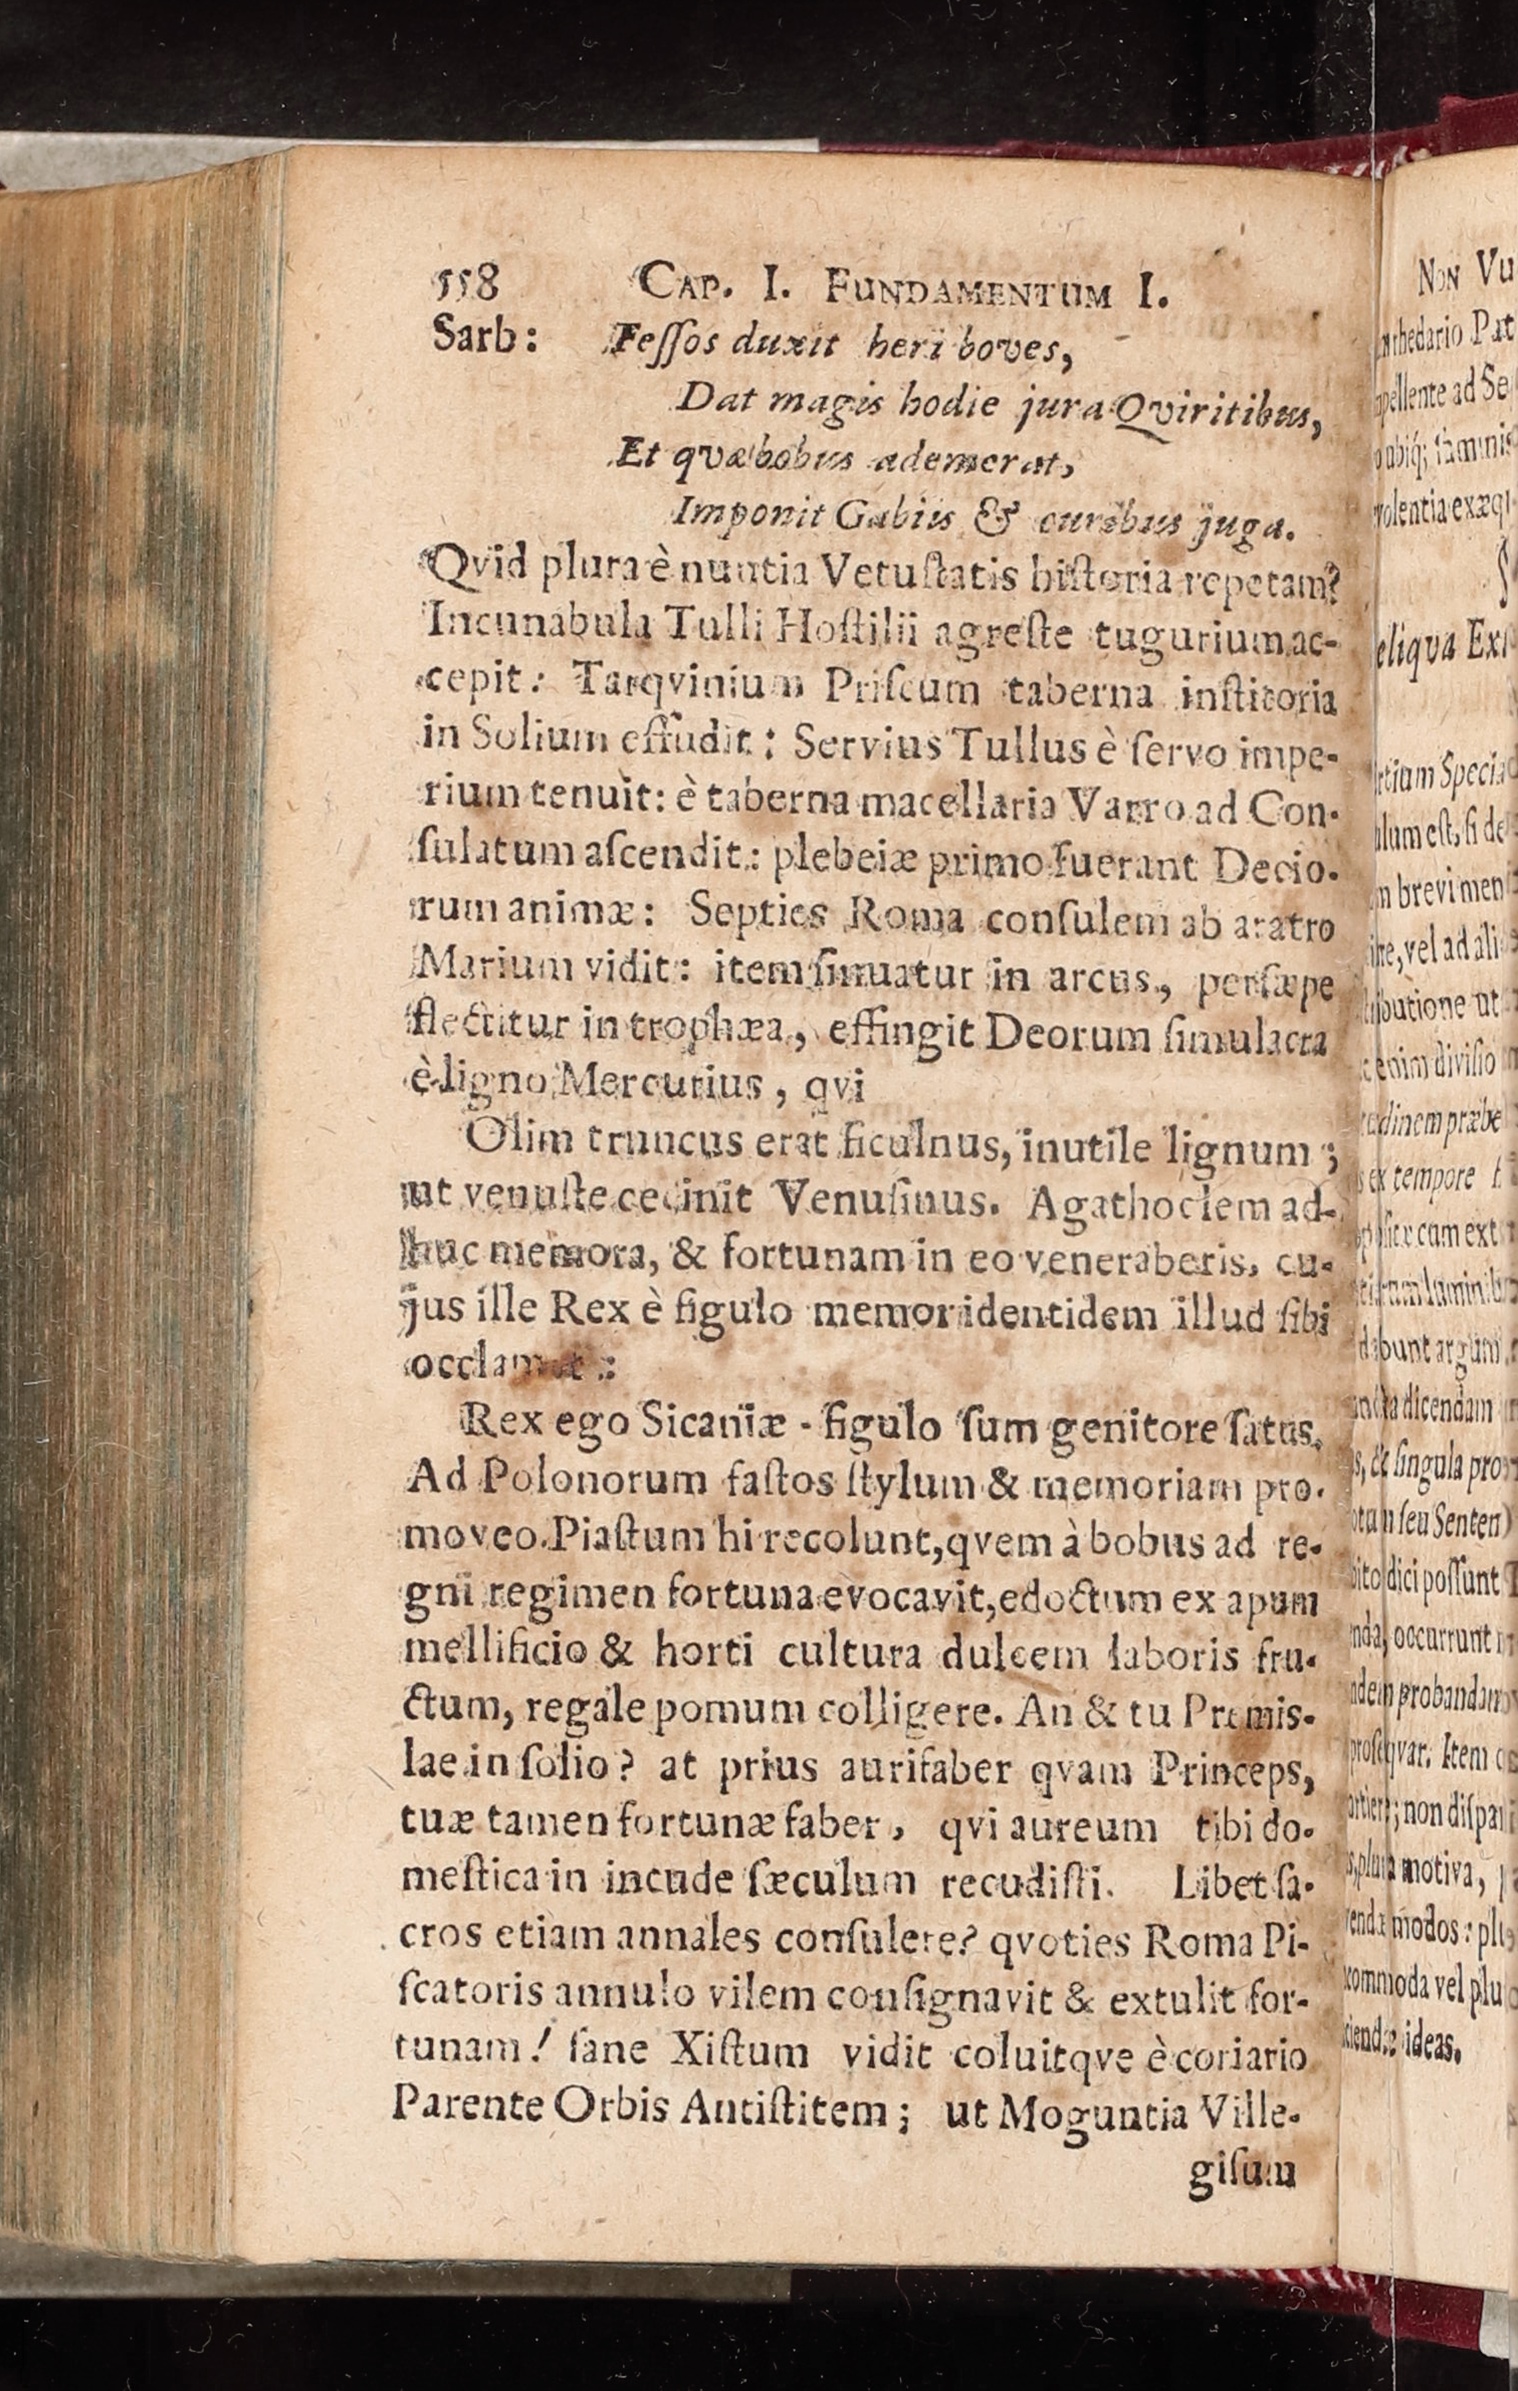 558 CAP. I. FUNDAMENTUM I.
Sarb: Feſſos duxit heri boves,
Dat magis hodie jura Qviritibus,
Et qvæ bobus ademerat,
Imponit Gabiis & curibus juga.
Qvid plura è nuntia Vetuſtatis hiſtoria repetam?
Incunabula Tulli Hoſtilii agreſte tugurium ac-
cepit: Tarqvinium Priſcum taberna inſtitoria
in Solium effudit: Servius Tullus è ſervo impe-
rium tenuit: è taberna macellaria Varro ad Con-
ſulatum aſcendit: plebeiæ primo fuerant Decio-
rum animæ: Septies Roma conſulem ab aratro
Marium vidit: item ſinuatur in arcus, perſæpe
flectitur in trophæa, effingit Deorum ſimulacra
è ligno Mercurius, qvi
Olim truncus erat ficulnus, inutile lignum;
ut venuſte cecinit Venuſinus. Agathoclem ad-
huc memora, & fortunam in eo veneraberis, cu-
jus ille Rex è figulo memor identidem illud ſibi
occlamat:
Rex ego Sicaniæ - figulo ſum genitore ſatus.
Ad Polonorum faſtos ſtylum & memoriam pro-
moveo. Piaſtum hi recolunt, qvem à bobus ad re-
gni regimen fortuna evocavit, edoctum ex apum
mellificio & horti cultura dulcem laboris fru-
ctum, regale pomum colligere. An & tu Premis-
lae in ſolio? at prius aurifaber qvam Princeps,
tuæ tamen fortunæ faber, qvi aureum tibi do-
meſtica in incude ſæculum recudiſti. Libet ſa-
cros etiam annales conſulere? qvoties Roma Pi-
ſcatoris annulo vilem conſignavit & extulit for-
tunam! ſane Xiſtum vidit coluitqve è coriario
Parente Orbis Antiſtitem; ut Moguntia Ville-
giſum
NON
brevi
tempore
dicendam
ſingula
dici poſſunt
occurrunt
Item
motiva,
modos:
vel
ideas.